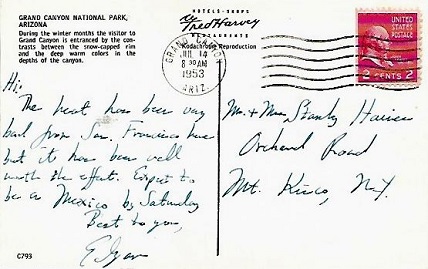 GRAND CANYON NATIONAL PARK,
ARIZONA
During the winter months the visitor to
Grand Canyon is entranced by the con-
trasts between the snow-capped rim
and the deep warm colors in the
depths of the canyon.
HOTELS-SHOPS
Fred Harvey
RESTAURANTS
Kodachrome Reproduction
GRAND CANYON
JUL 14
8 30 AM
1953
ARIZ.
UNITED
STATES
POSTAGE
2 CENTS 2
Hi!
The heat has been very
bad from San Francisco here
but it has been well
worth the effort. Expect to
be in Mexico by Saturday
Best to you,
Edgar
Mr. & Mrs.
Orchard Road
Mt. Kisco, N.Y.
C793